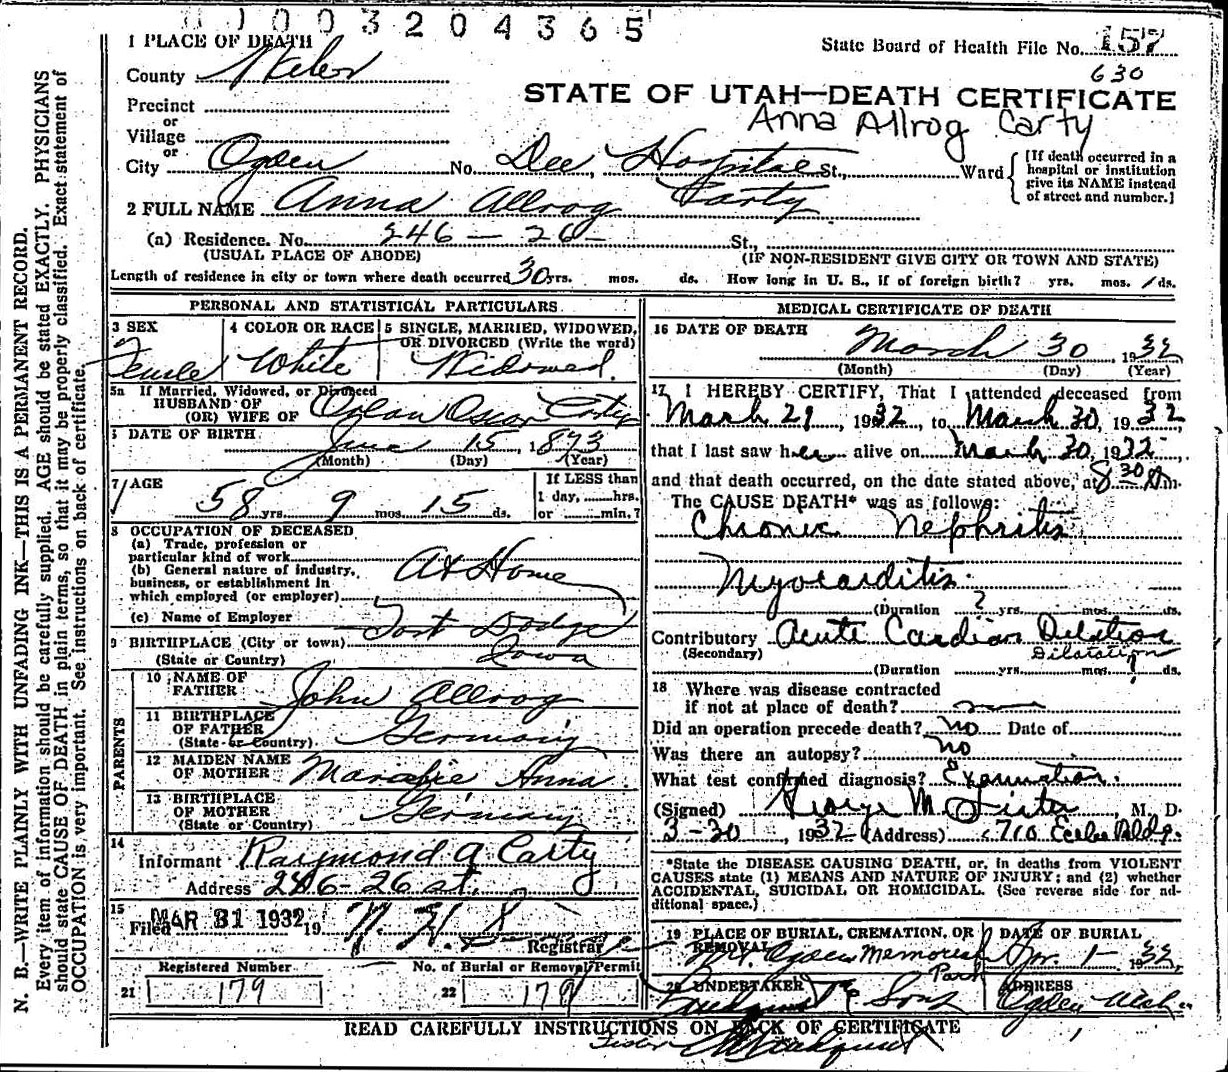 0003204365
1 PLACE OF DEATH
State Board of Health File No. 157
630
County Weber
STATE OF UTAH—DEATH CERTIFICATE
Precinct
or
Village
Anna Allrog Carty
or
City Ogden No. Dee Hospital St., Ward
[If death occurred in a hospital or institution give its NAME instead of street and number.]
2 FULL NAME Anna Allrog Carty
(a) Residence. No. 246 - 26 - St.,
(USUAL PLACE OF ABODE) (IF NON-RESIDENT GIVE CITY OR TOWN AND STATE)
Length of residence in city or town where death occurred 30 yrs. mos. ds. How long in U. S., if of foreign birth? yrs. mos. ds.
PERSONAL AND STATISTICAL PARTICULARS
3 SEX Female
4 COLOR OR RACE White
5 SINGLE, MARRIED, WIDOWED, OR DIVORCED (Write the word) Widowed.
5a If Married, Widowed, or Divorced
HUSBAND OF
(OR) WIFE OF Oscar Carty
6 DATE OF BIRTH June 15, 1873
(Month) (Day) (Year)
7 AGE 58 yrs. 9 mos. 15 ds.
If LESS than
1 day, hrs.
or min.?
8 OCCUPATION OF DECEASED
(a) Trade, profession or
particular kind of work
(b) General nature of industry,
business, or establishment in
which employed (or employer)
At Home
(c) Name of Employer
9 BIRTHPLACE (City or town) Fort Dodge
(State or Country) Iowa
PARENTS
10 NAME OF FATHER John Allrog
11 BIRTHPLACE OF FATHER
(State or Country) Germany
12 MAIDEN NAME OF MOTHER Anna
13 BIRTHPLACE OF MOTHER
(State or Country) Germany
14
Informant Raymond A Carty
Address 246-26 st.
15
Filed MAR 31 1932 19
Registrar
Registered Number
21 179
No. of Burial or Removal Permit
22 179
MEDICAL CERTIFICATE OF DEATH
16 DATE OF DEATH
March 30, 1932
(Month) (Day) (Year)
17 I HEREBY CERTIFY, That I attended deceased from
March 29, 1932, to March 30, 1932,
that I last saw her alive on March 30, 1932,
and that death occurred, on the date stated above, at 8 30 A m.
The CAUSE DEATH* was as follows:
Chronic Nephritis
Myocarditis.
(Duration ? yrs. mos. ds.
Contributory Acute Cardiac Dilation
(Secondary) Dilatation
(Duration yrs. mos. ? ds.
18 Where was disease contracted
if not at place of death?
Did an operation precede death? no Date of
Was there an autopsy? no
What test confirmed diagnosis? Examination.
(Signed) George M. Fister, M. D.
3-30, 1932 (Address) 710 Eccles Bldg.
*State the DISEASE CAUSING DEATH, or, in deaths from VIOLENT
CAUSES state (1) MEANS AND NATURE OF INJURY; and (2) whether
ACCIDENTAL, SUICIDAL OR HOMICIDAL. (See reverse side for ad-
ditional space.)
19 PLACE OF BURIAL, CREMATION, OR REMOVAL
Ogden Memorial Park
DATE OF BURIAL
Apr. 1- 1932
20 UNDERTAKER
Lindquist & Sons
ADDRESS
Ogden Utah
READ CAREFULLY INSTRUCTIONS ON BACK OF CERTIFICATE
N. B.—WRITE PLAINLY WITH UNFADING INK—THIS IS A PERMANENT RECORD.
Every item of information should be carefully supplied. AGE should be stated EXACTLY. PHYSICIANS
should state CAUSE OF DEATH in plain terms, so that it may be properly classified. Exact statement of
OCCUPATION is very important. See instructions on back of certificate.